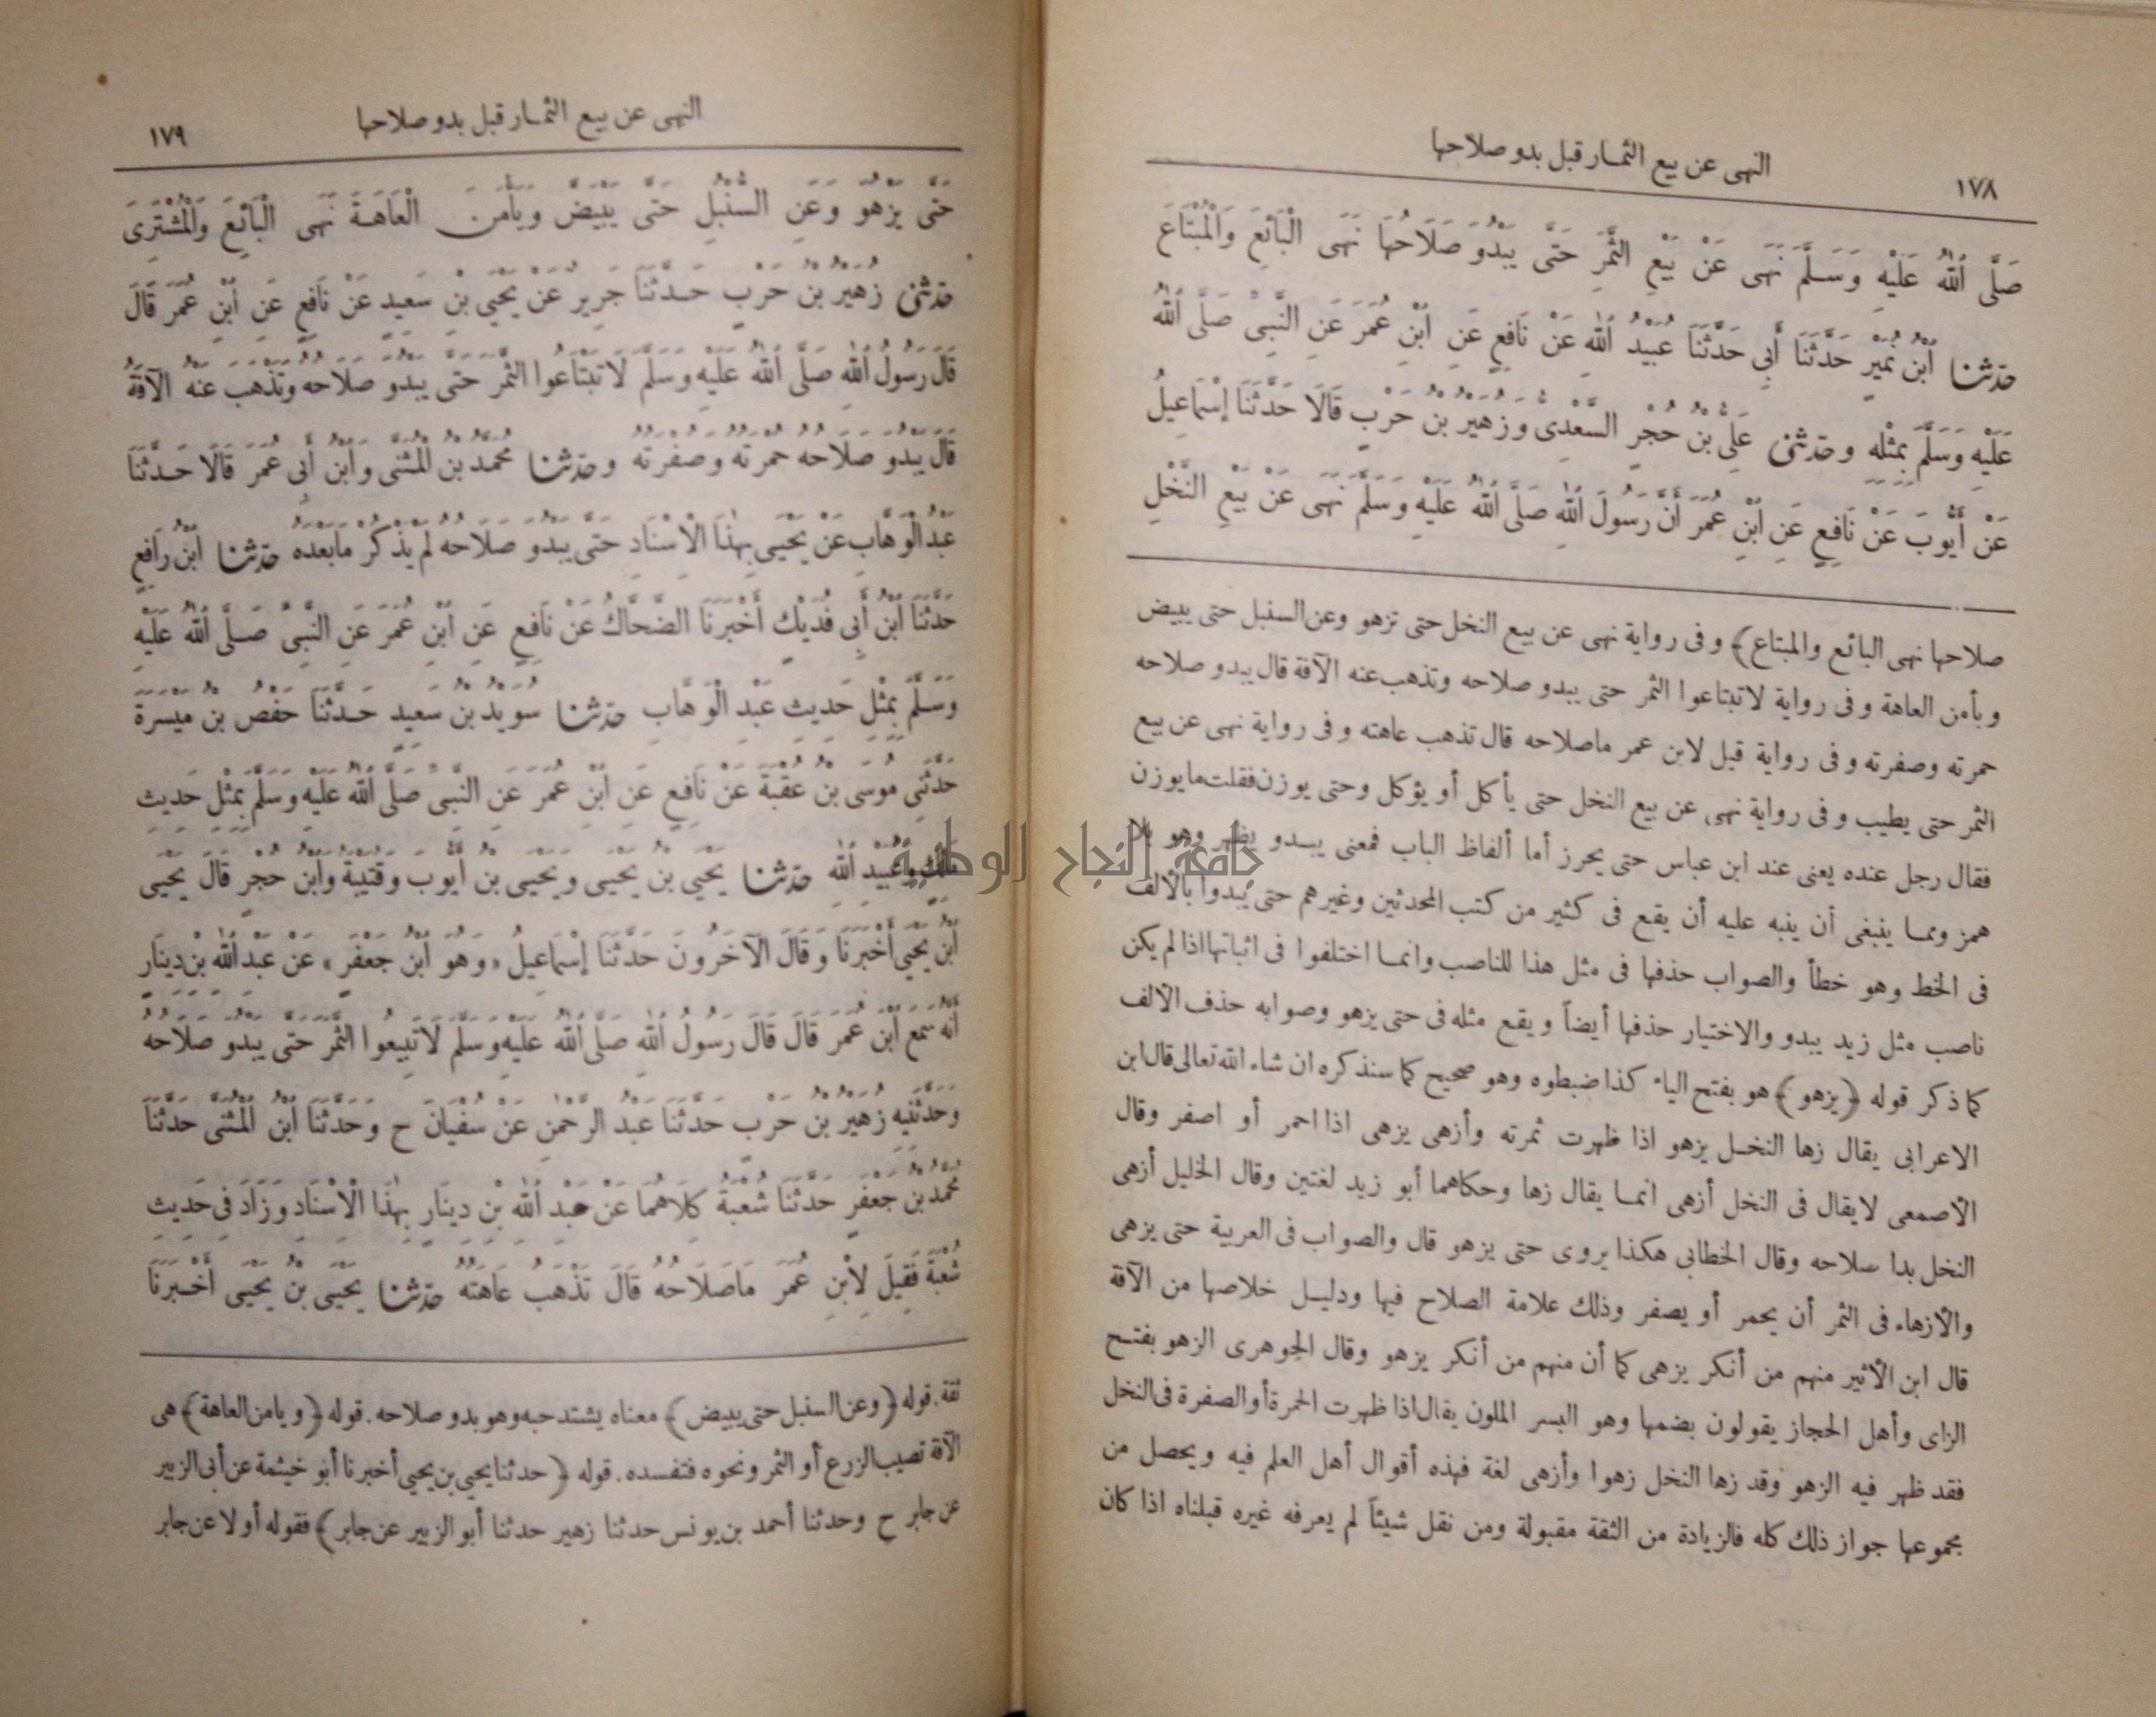 النهى عن بيع الثمار قبل بدو صلاحها
١٧٨
صَلَّى اللهُ عَلَيْهِ وَسَلَّمَ نَهَى عَنْ بَيْعِ الثَّمَرِ حَتَّى يَبْدُوَ صَلَاحُهَا نَهَى الْبَائِعَ وَالْمُبْتَاعَ
حدثنا ابْنُ نُمَيْرٍ حَدَّثَنَا أَبِي حَدَّثَنَا عُبَيْدُ اللهِ عَنْ نَافِعٍ عَنِ ابْنِ عُمَرَ عَنِ النَّبِيِّ صَلَّى اللهُ
عَلَيْهِ وَسَلَّمَ بِمِثْلِهِ وحدثنى عَلِيُّ بْنُ حُجْرٍ السَّعْدِىُّ وَزُهَيْرُ بْنُ حَرْبٍ قَالَا حَدَّثَنَا إِسْمَاعِيلُ
عَنْ أَيُّوبَ عَنْ نَافِعٍ عَنِ ابْنِ عُمَرَ أَنَّ رَسُولَ اللهِ صَلَّى اللهُ عَلَيْهِ وَسَلَّمَ نَهَى عَنْ بَيْعِ النَّخْلِ
صلاحها نهى البائع والمبتاع﴾ وفى رواية نهى عن بيع النخل حتى تزهو وعن السنبل حتى يبيض
ويأمن العاهة وفى رواية لا تبتاعوا الثمر حتى يبدو صلاحه وتذهب عنه الآفة قال يبدو صلاحه
حمرته وصفرته وفى رواية قيل لابن عمر ماصلاحه قال تذهب عاهته وفى رواية نهى عن بيع
الثمر حتى يطيب وفى رواية نهى عن بيع النخل حتى يأكل أو يؤكل وحتى يوزن فقلت مايوزن
فقال رجل عنده يعنى عند ابن عباس حتى يحرز أما ألفاظ الباب فمعنى يبدو يظهر وهو بلا
همز ومما ينبغى أن ينبه عليه أن يقع فى كثير من كتب المحدثين وغيرهم حتى يبدوا بالألف
فى الخط وهو خطأ والصواب حذفها فى مثل هذا للناصب وانما اختلفوا فى اثباتها اذا لم يكن
ناصب مثل زيد يبدو والاختيار حذفها أيضاً ويقع مثله فى حتى يزهو وصوابه حذف الألف
كما ذكر قوله ﴿يزهو﴾ هو بفتح الياء كذا ضبطوه وهو صحيح كما سنذكره ان شاء الله تعالى قال ابن
الاعرابى يقال زها النخل يزهو اذا ظهرت ثمرته وأزهى يزهى اذا احمر أو اصفر وقال
الأصمعى لا يقال فى النخل أزهى انما يقال زها وحكاهما أبو زيد لغتين وقال الخليل أزهى
النخل بدا صلاحه وقال الخطابى هكذا يروى حتى يزهو قال والصواب فى العربية حتى يزهى
والأزهاء فى الثمر أن يحمر أو يصفر وذلك علامة الصلاح فيها ودليل خلاصها من الآفة
قال ابن الأثير منهم من أنكر يزهى كما أن منهم من أنكر يزهو وقال الجوهرى الزهو بفتح
الزاى وأهل الحجاز يقولون بضمها وهو البسر الملون يقال اذا ظهرت الحمرة أو الصفرة فى النخل
فقد ظهر فيه الزهو وقد زها النخل زهوا وأزهى لغة فهذه أقوال أهل العلم فيه ويحصل من
مجموعها جواز ذلك كله فالزيادة من الثقة مقبولة ومن نقل شيئاً لم يعرفه غيره قبلناه اذا كان
النهى عن بيع الثمار قبل بدو صلاحها
١٧٩
حَتَّى يَزْهُوَ وَعَنِ السُّنْبُلِ حَتَّى يَبْيَضَّ وَيَأْمَنَ الْعَاهَةَ نَهَى الْبَائِعَ وَالْمُشْتَرِىَ
حدثنى زُهَيْرُ بْنُ حَرْبٍ حَدَّثَنَا جَرِيرٌ عَنْ يَحْيَى بْنِ سَعِيدٍ عَنْ نَافِعٍ عَنِ ابْنِ عُمَرَ قَالَ
قَالَ رَسُولُ اللهِ صَلَّى اللهُ عَلَيْهِ وَسَلَّمَ لَا تَبْتَاعُوا الثَّمَرَ حَتَّى يَبْدُوَ صَلَاحُهُ وَتَذْهَبَ عَنْهُ الآفَةُ
قَالَ يَبْدُوَ صَلَاحُهُ حُمْرَتُهُ وَصُفْرَتُهُ وحدثنا مُحَمَّدُ بْنُ الْمُثَنَّى وَابْنُ أَبِى عُمَرَ قَالَا حَدَّثَنَا
عَبْدُ الْوَهَّابِ عَنْ يَحْيَى بِهٰذَا الْاِسْنَادِ حَتَّى يَبْدُوَ صَلَاحُهُ لَمْ يَذْكُرْ مَا بَعْدَهُ حدثنا ابْنُ رَافِعٍ
حَدَّثَنَا ابْنُ أَبِى فُدَيْكٍ أَخْبَرَنَا الضَّحَّاكُ عَنْ نَافِعٍ عَنِ ابْنِ عُمَرَ عَنِ النَّبِىِّ صَلَّى اللهُ عَلَيْهِ
وَسَلَّمَ بِمِثْلِ حَدِيثِ عَبْدِ الْوَهَّابِ حدثنا سُوَيْدُ بْنُ سَعِيدٍ حَدَّثَنَا حَفْصُ بْنُ مَيْسَرَةَ
حَدَّثَنِى مُوسَى بْنُ عُقْبَةَ عَنْ نَافِعٍ عَنِ ابْنِ عُمَرَ عَنِ النَّبِىِّ صَلَّى اللهُ عَلَيْهِ وَسَلَّمَ بِمِثْلِ حَدِيثِ
مَالِكٍ وَعُبَيْدِ اللهِ حدثنا يَحْيَى بْنُ يَحْيَى وَيَحْيَى بْنُ أَيُّوبَ وَقُتَيْبَةُ وَابْنُ حُجْرٍ قَالَ يَحْيَى
ابْنُ يَحْيَى أَخْبَرَنَا وَقَالَ الآخَرُونَ حَدَّثَنَا إِسْمَاعِيلُ «وَهُوَ ابْنُ جَعْفَرٍ» عَنْ عَبْدِ اللهِ بْنِ دِينَارٍ
أَنَّهُ سَمِعَ ابْنَ عُمَرَ قَالَ قَالَ رَسُولُ اللهِ صَلَّى اللهُ عَلَيْهِ وَسَلَّمَ لَا تَبِيعُوا الثَّمَرَ حَتَّى يَبْدُوَ صَلَاحُهُ
وَحَدَّثَنِيهِ زُهَيْرُ بْنُ حَرْبٍ حَدَّثَنَا عَبْدُ الرَّحْمٰنِ عَنْ سُفْيَانَ ح وَحَدَّثَنَا ابْنُ الْمُثَنَّى حَدَّثَنَا
مُحَمَّدُ بْنُ جَعْفَرٍ حَدَّثَنَا شُعْبَةُ كِلَاهُمَا عَنْ عَبْدِ اللهِ بْنِ دِينَارٍ بِهٰذَا الْاِسْنَادِ وَزَادَ فِى حَدِيثِ
شُعْبَةَ فَقِيلَ لِابْنِ عُمَرَ مَا صَلَاحُهُ قَالَ تَذْهَبُ عَاهَتُهُ حدثنا يَحْيَى بْنُ يَحْيَى أَخْبَرَنَا
ثقة. قوله ﴿وعن السنبل حتى يبيض﴾ معناه يشتد حبه وهو بدو صلاحه. قوله ﴿ويامن العاهة﴾ هى
الآفة تصيب الزرع أو الثمر ونحوه فتفسده. قوله ﴿حدثنا يحيى بن يحيى أخبرنا أبو خيثمة عن أبى الزبير
عن جابر ح وحدثنا أحمد بن يونس حدثنا زهير حدثنا أبو الزبير عن جابر﴾ فقوله أولا عن جابر
جامعة النجاح الوطنية